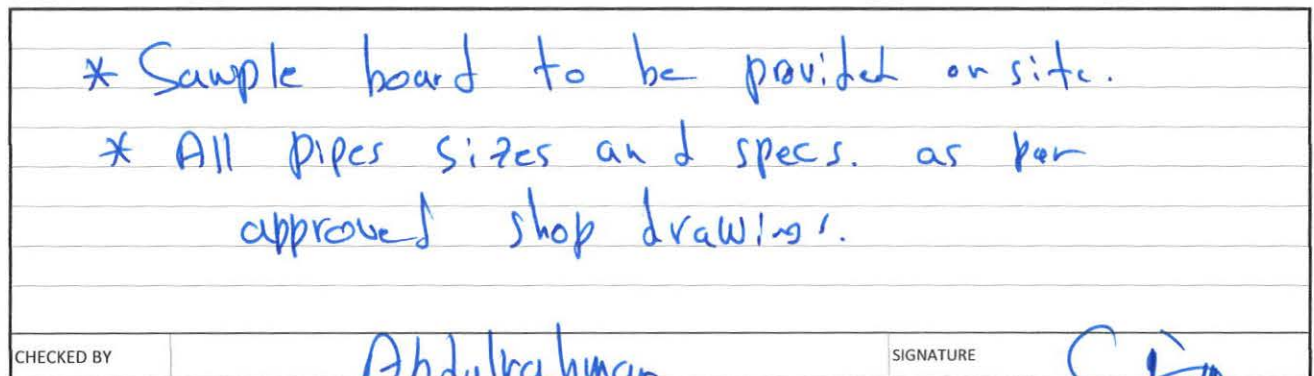 * Sample board to be provided on site.
* All pipes sizes and specs. as per
approved shop drawings.
CHECKED BY Abdulrahman SIGNATURE